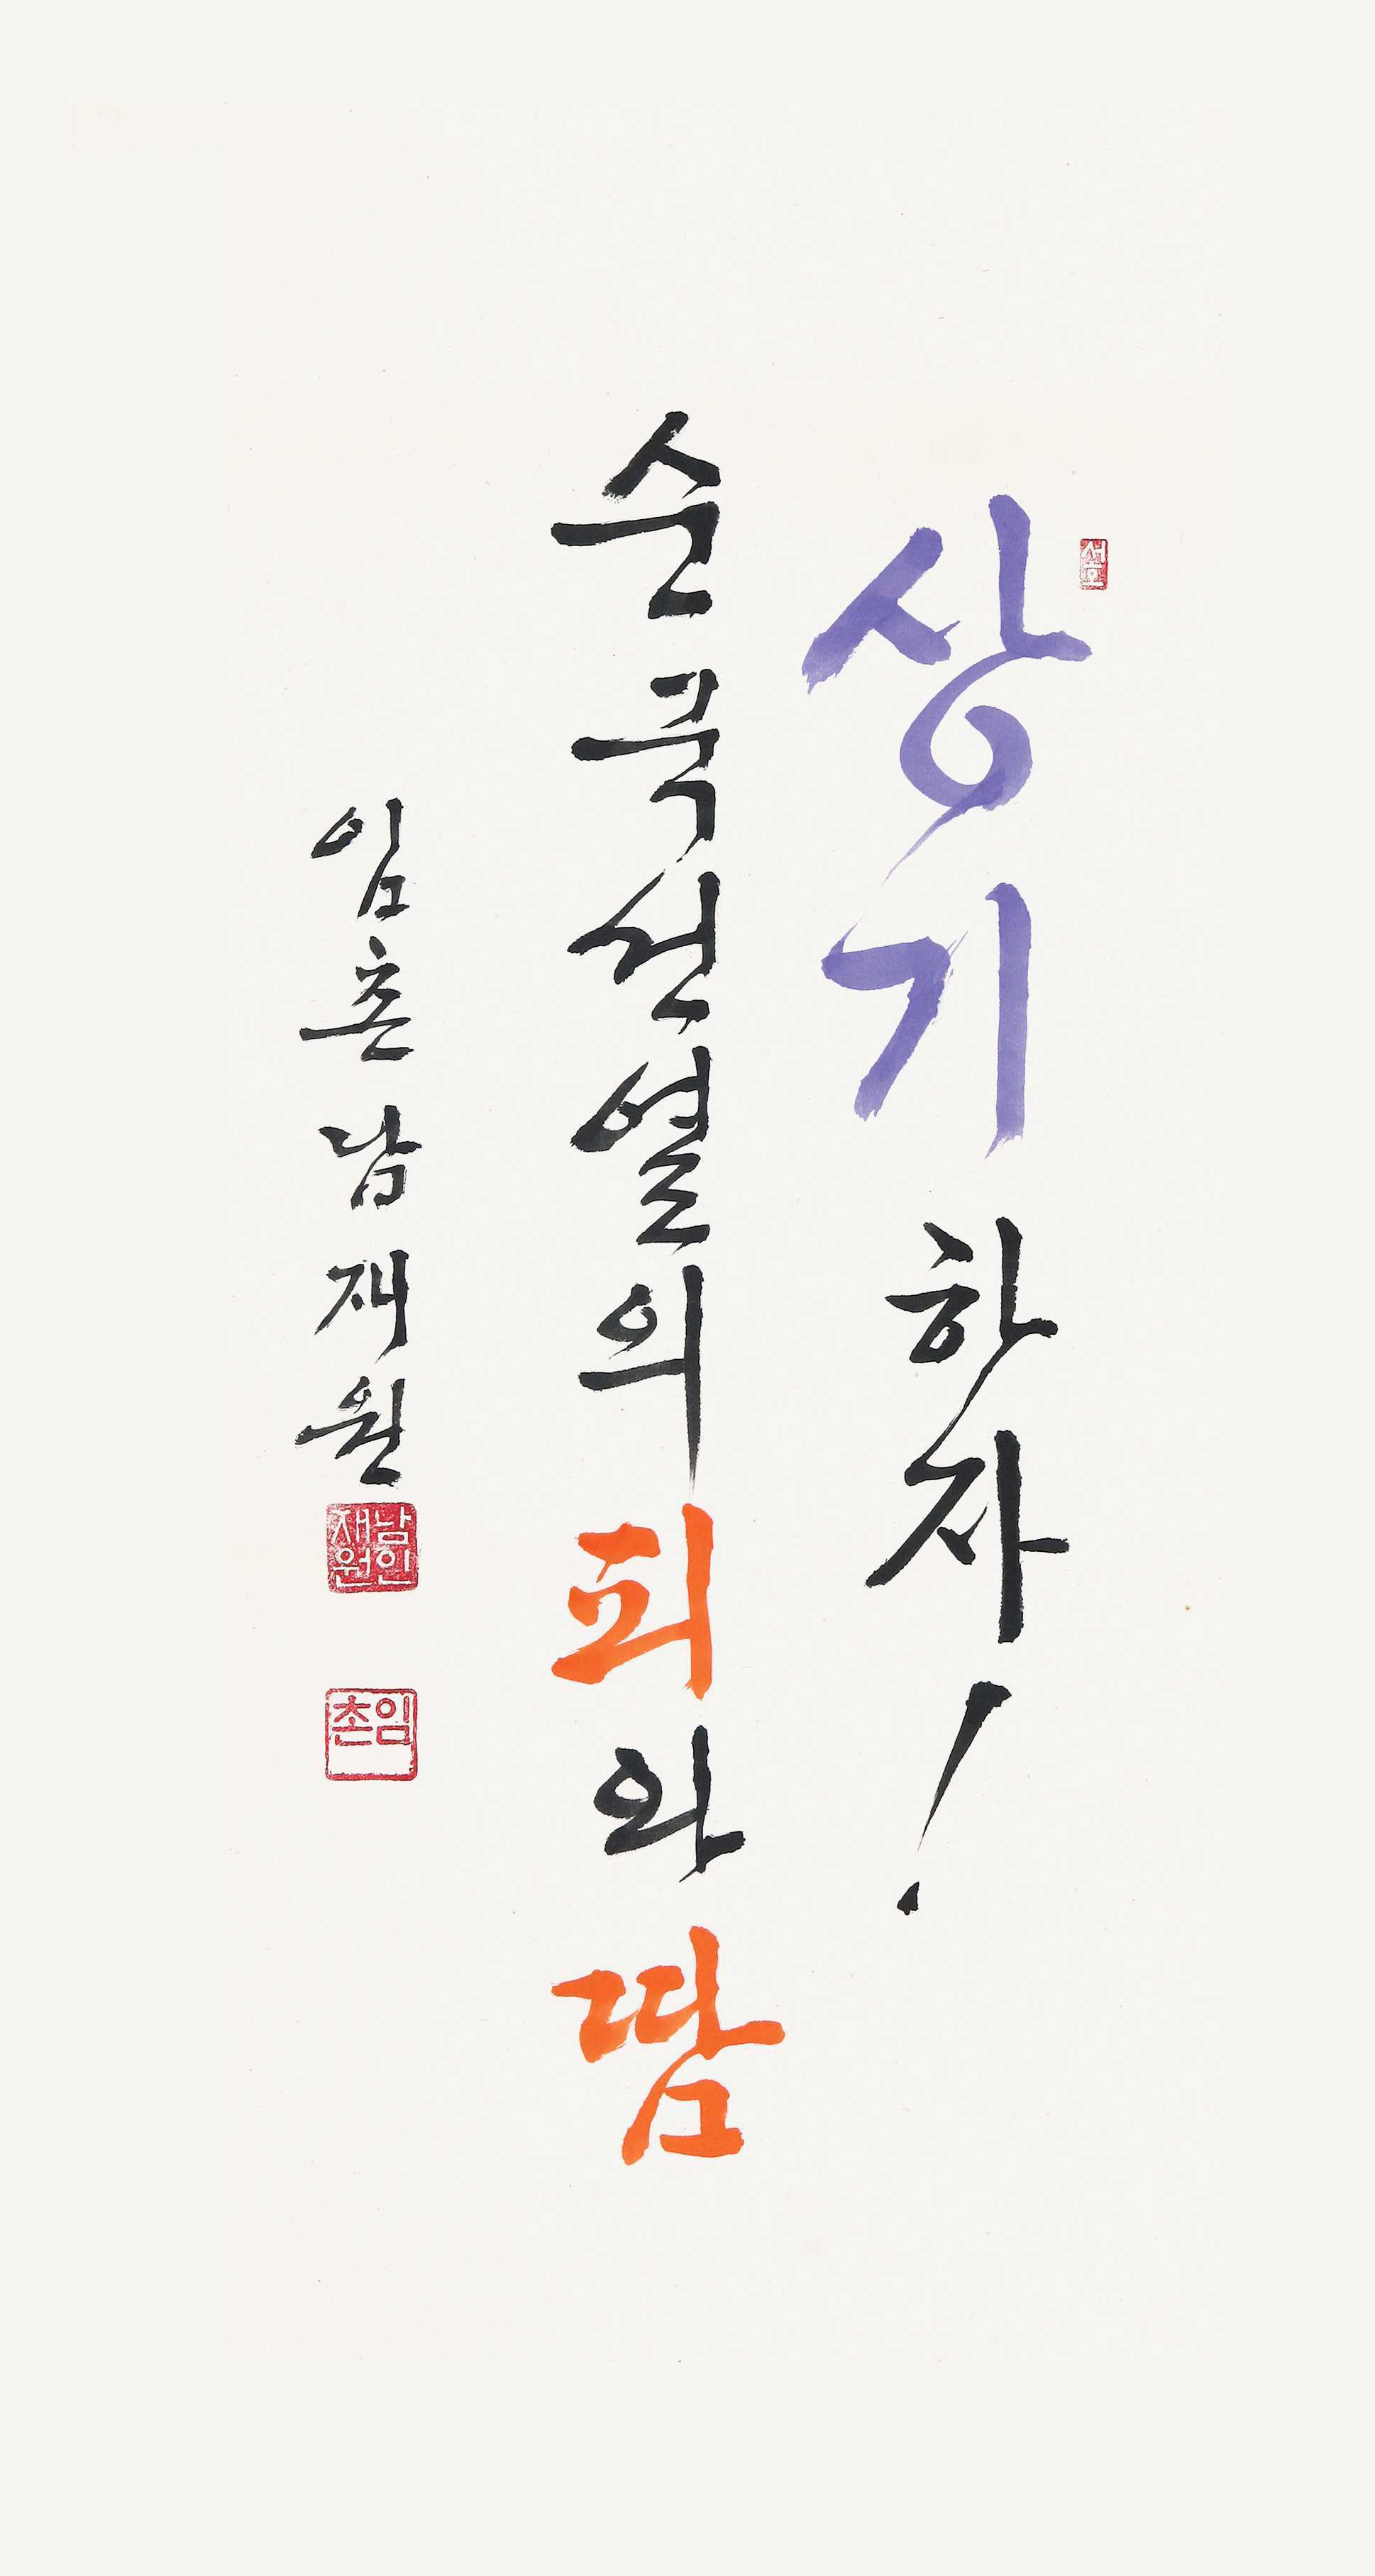 상기하자!
순국선열의 피와 땀
임촌 남재원
서호
남인재원
임촌